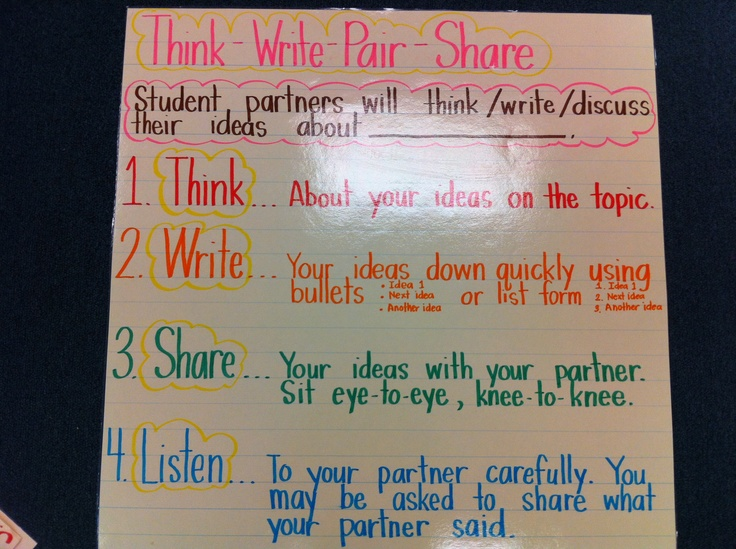 Think-Write-Pair-Share
Student partners will think/write/discuss
their ideas about ____________.
1. Think... About your ideas on the topic.
2. Write... Your ideas down quickly using
bullets • Idea 1 • Next idea • Another idea or list form 1. Idea 1 2. Next idea 3. Another idea
3. Share... Your ideas with your partner.
Sit eye-to-eye, knee-to-knee.
4. Listen... To your partner carefully. You
may be asked to share what
your partner said.